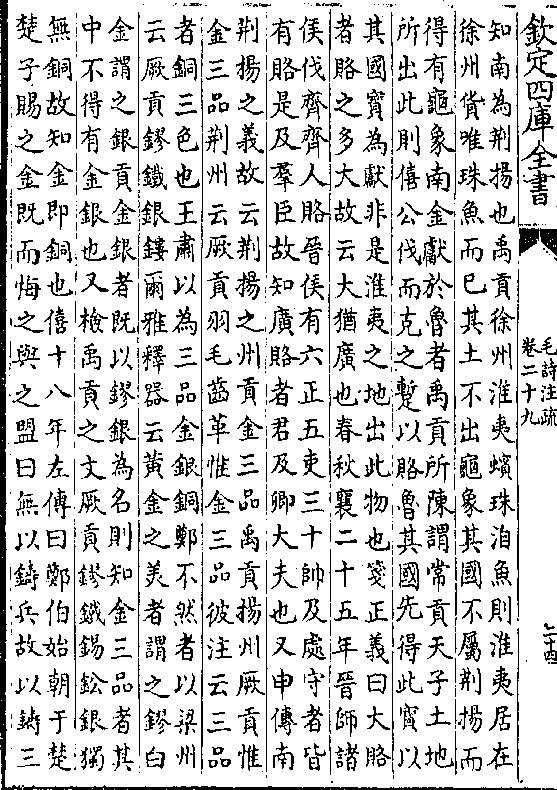 欽定四庫全書
毛詩注疏
卷二十九
七十四
知南為荆揚也禹貢徐州淮夷蠙珠洎魚則淮夷居在
徐州貨唯珠魚而已其土不出龜象其國不屬荆揚而
得有龜象南金獻於魯者禹貢所陳謂常貢天子土地
所出此則僖公伐而克之蹔以賂魯其國先得此寳以
其國寳為獻非是淮夷之地出此物也箋正義曰大賂
者賂之多大故云大猶廣也春秋襄二十五年晉師諸
侯伐齊齊人賂晉侯有六正五吏三十帥及處守者皆
有賂是及羣臣故知廣賂者君及卿大夫也又申傳南
荆揚之義故云荆揚之州貢金三品禹貢揚州厥貢惟
金三品荆州云厥貢羽毛齒革惟金三品彼注云三品
者銅三色也王肅以為三品金銀銅鄭不然者以梁州
云厥貢鏐鐵銀鏤爾雅釋器云黄金之美者謂之鏐白
金謂之銀貢金銀者既以鏐銀為名則知金三品者其
中不得有金銀也又檢禹貢之文厥貢鏐鐵錫鈆銀獨
無銅故知金即銅也僖十八年左傳曰鄭伯始朝于楚
楚子賜之金既而悔之與之盟曰無以鑄兵故以鑄三